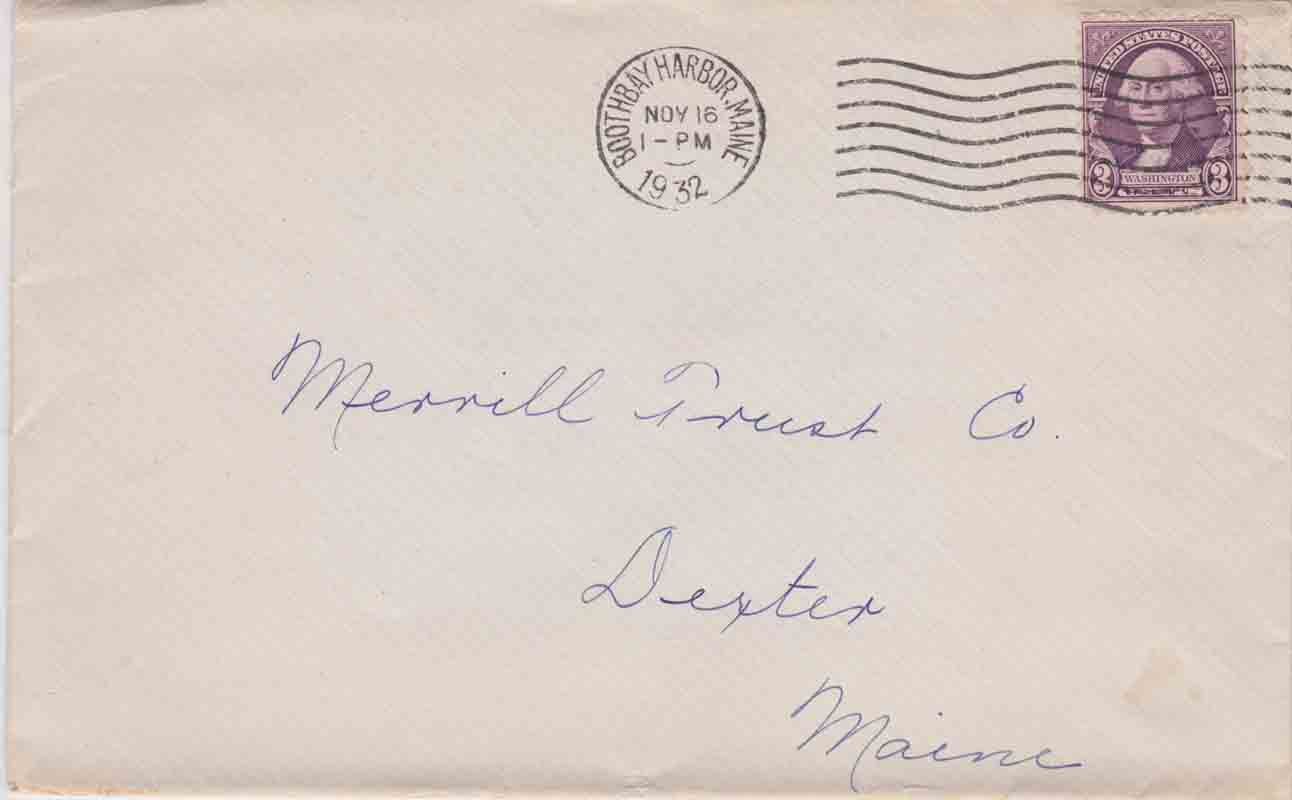 BOOTHBAY HARBOR, MAINE
NOV 16
1 - PM
1932
UNITED STATES POSTAGE
3 WASHINGTON 3
Merrill Trust Co.
Dexter
Maine